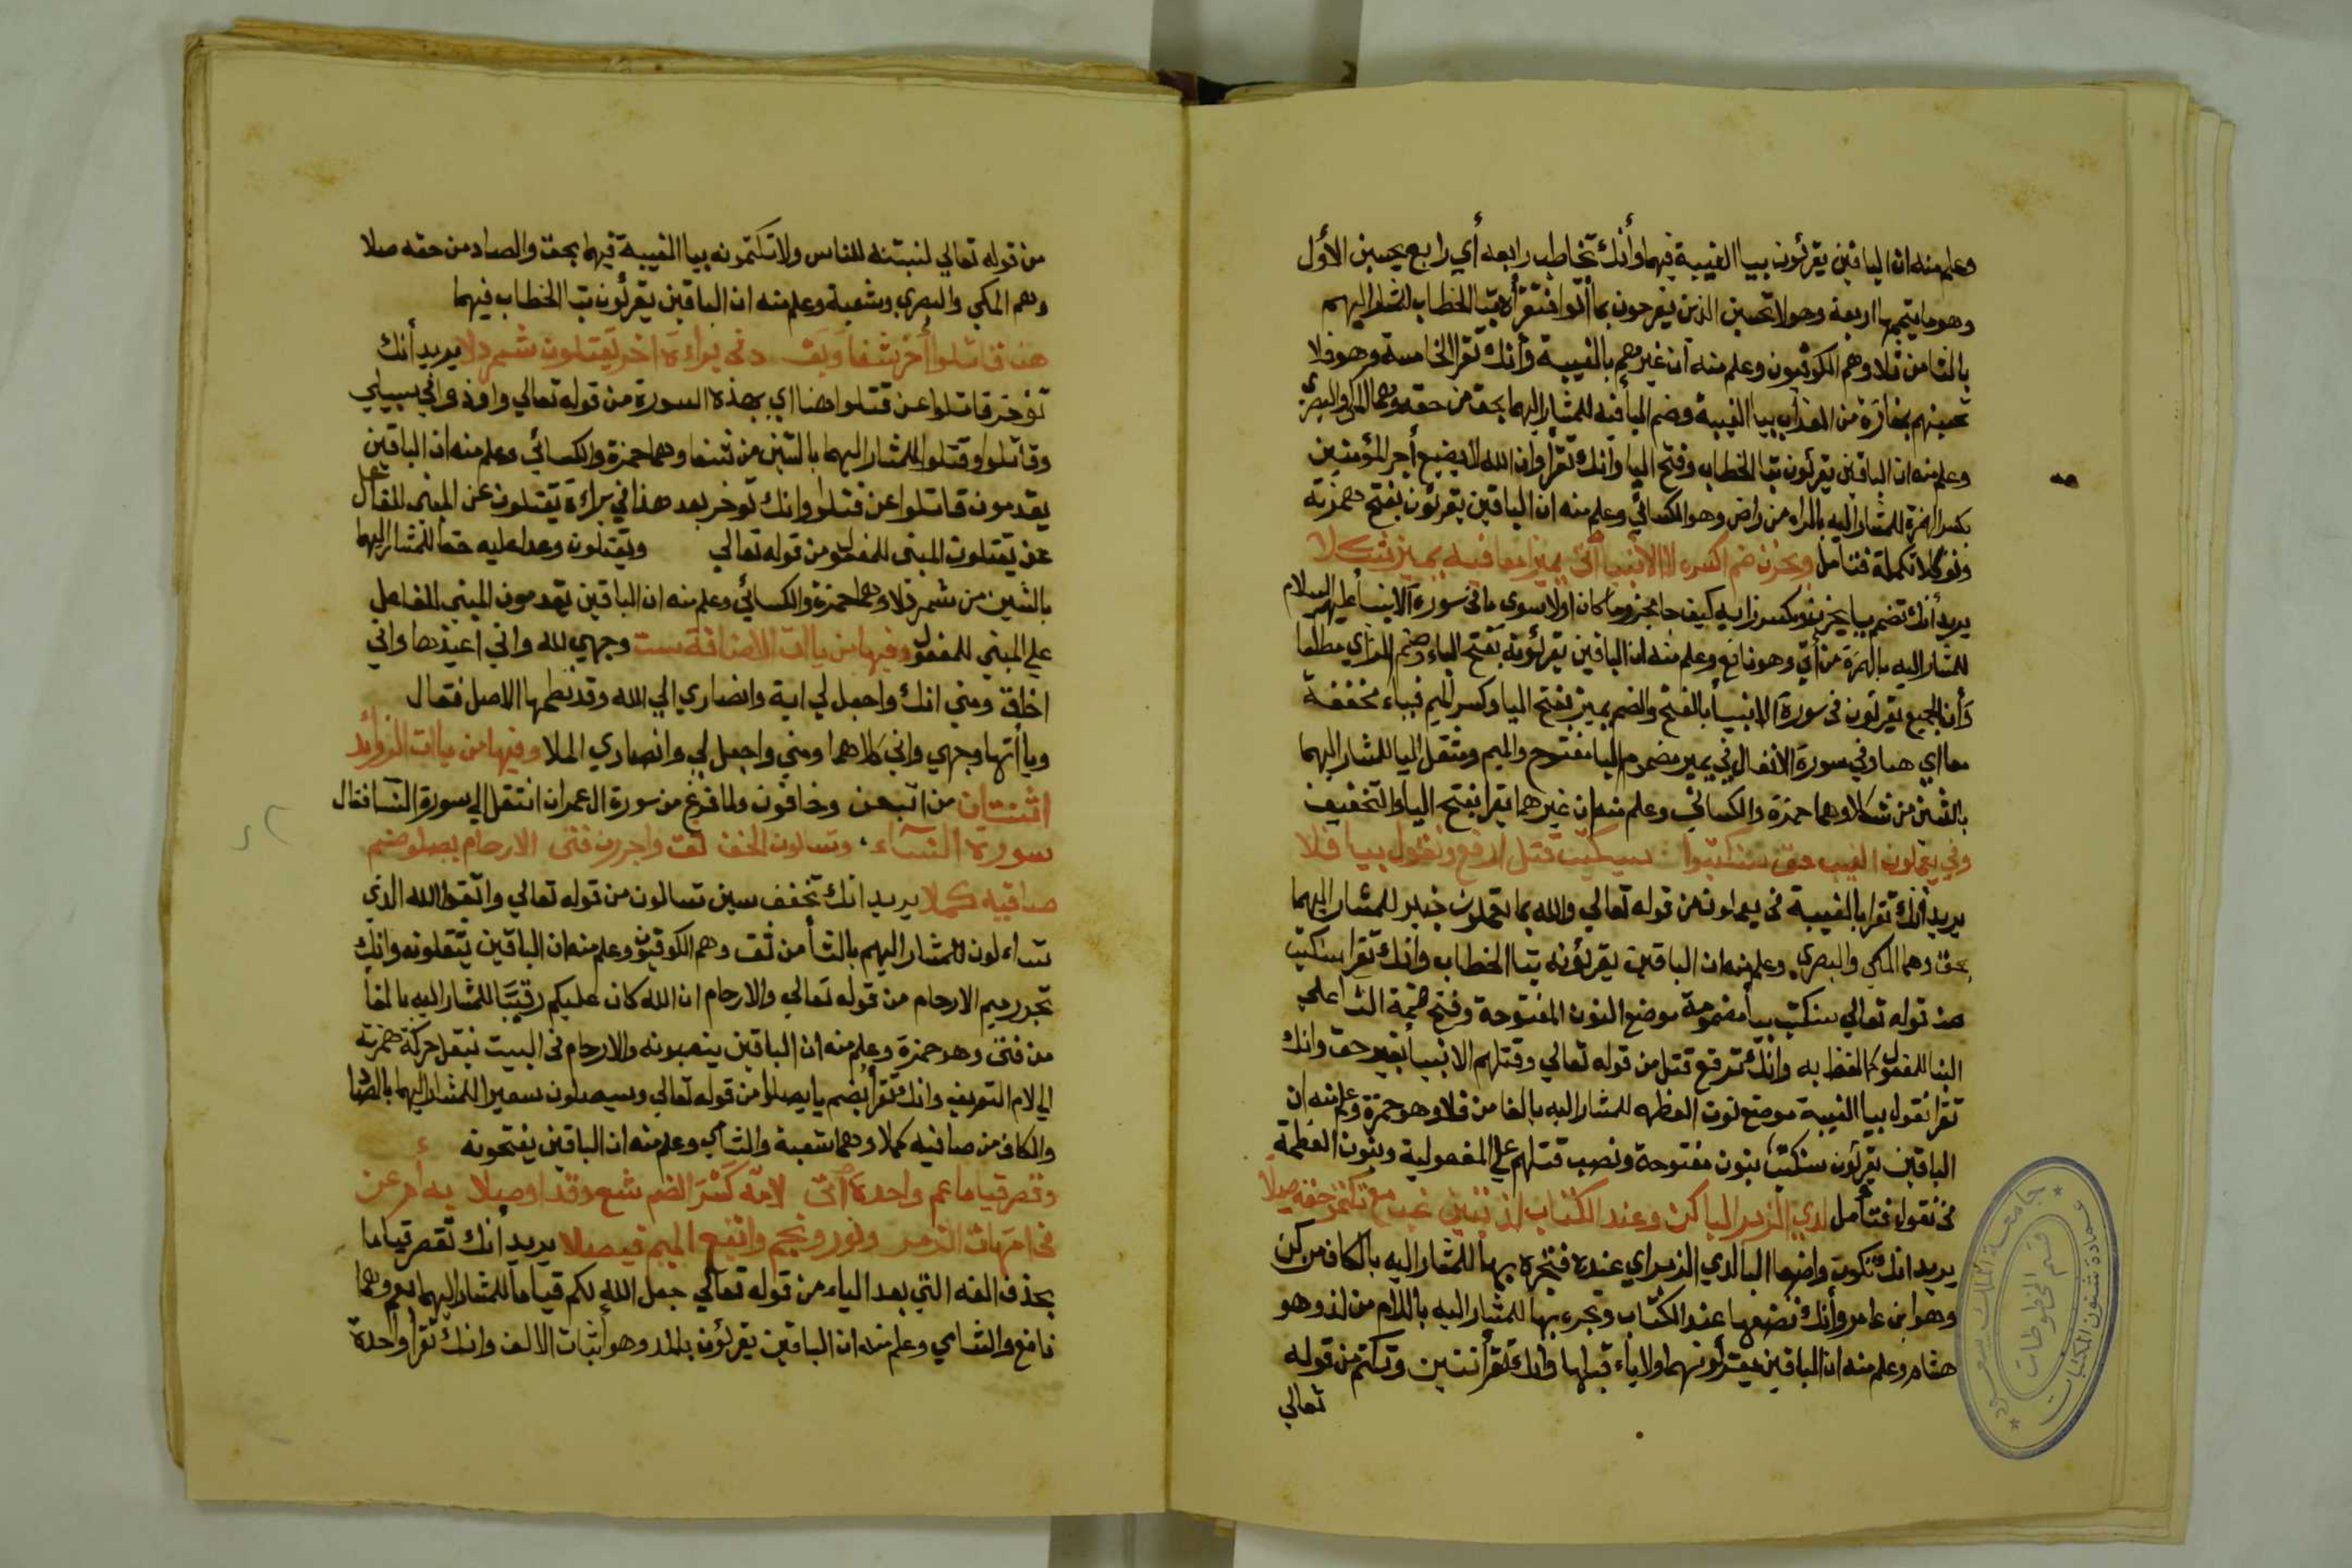 وعلم منه ان الباقين يقرئون بيا الغيبة فيهما وأنك تخاطب رابعه أي رابع يحسبن الأول
وهو ما يتمها اربعة وهو لا تحسبن الذين يفرحون بما أتوا فتقرأه بتا الخطاب للمشار اليهم
بالثا من ثلا وهم الكوفيون وعلم منه أن غيرهم بالغيبة وأنك تقرا الخامسة وهو فلا
تحسبنهم بمفازة من العذاب بيا الغيبة وضم البا فيه للمشار اليهما بحق من حقه وهما المكي والبصري
وعلم منه ان الباقين يقرئون بتا الخطاب وفتح البا وانك تقرأ وان الله لا يضيع أجر المؤمنين
بكسر الهمزة للمشار اليه بالراء من راض وهو الكسائي وعلم منه ان الباقين يقرئون بفتح همزته
فتامل ويحزن ضم اكسره لا الانبيا أتى يميز معا فيه يميز شكلا
يريد أنك تضم يا يحزن وتكسر زايه كيف جا مجزوما كان اولا سوى ما في سورة الانبيا عليهم السلام
للمشار اليه بالهمزة من أتى وهو نافع وعلم منه ان الباقين يقرئونه بفتح الياء وضم الزاي مطلقا
وأن الجميع يقرئون في سورة الانبيا بالفتح والضم يميز بفتح اليا وكسر الميم فياء مخففة
معا اي هنا وفي سورة الانفال في يميز مضموم اليا مفتوح والميم ومثقل اليا للمشار اليهما
بالشين من شكلا وهما حمزة والكسائي وعلم منه ان غيرهما يقرا بفتح اليا والتخفيف
وفي يعملون الغيب حق سنكتبوا سيكتب قتل ارفع ونقول بيا فلا
يريد أنك تقرا بالغيبة في يعملون من قوله تعالي والله بما تعملون خبير للمشار اليهما
بحق وهما المكي والبصري وعلم منه ان الباقين يقرؤنه بتا الخطاب وانك تقرا سنكتب
من قوله تعالي سنكتب بيا مضمومة موضع النون المفتوحة وفتح ضمة التا علي
البنا للمفعول كما لفظ به وانك ترفع قتل من قوله تعالي وقتلهم الانبيا بغير حق وانك
تقرا نقول بيا الغيبة موضع نون العظمه للمشار اليه بالفا من فلا وهو حمزة وعلم منه ان
الباقين يقرئون سنكتب بنون مفتوحة ونصب قتلهم علي المفعولية وبنون العظمة
في نقول فتأمل لدي الزبر البا كن وعند الكتاب لذ تبين غب مع تكتم حقه صلا
يريد انك تكون واضعا البا لدي الزبر اي عنده فتجره بها للمشار اليه بالكاف من كن
وهو ابن عامر وأنك تضعها عند الكتاب وتجره بها للمشار اليه باللام من لذ وهو
هشام وعلم منه ان الباقين يقرؤنهما ولا ياء قبلها وأنك تقرأ تبين وتكتم من قوله
تعالي
من قوله تعالي لتبيننه للناس ولا تكتمونه بيا الغيبة فيهما بحق والصاد من حقه صلا
وهم المكي والبصري وشعبة وعلم منه ان الباقين يقرئون بتا الخطاب فيهما
هنا قاتلوا أخر شفا وبف وفي براءة اخر يقتلون شمردلا يريد أنك
تؤخر قاتلوا عن قتلوا هنا اي بهذه السورة من قوله تعالي واوذوا في سبيلي
وقاتلوا وقتلوا للمشار اليهما بالشين من شفا وهما حمزة والكسائي وعلم منه ان الباقين
يقدمون قاتلوا عن قتلوا وانك توخر بعد هذا في براءة يقتلون عن المبنى للفاعل
عن يقتلون المبني للمفعول من قوله تعالي ويقتلون وعدا عليه حقا للمشار اليهما
بالشين من شمردلا وهما حمزة والكسائي وعلم منه ان الباقين يقدمون المبني للفاعل
علي المبني للمفعول وفيها من ياات الاضافة ست وجهي لله واني اعيذها واني
اخلق ومني انك واجعل لي اية وانصاري الي الله وقد نظمها الاصل فقال
وياأتها وجهي واني كلاهما ومني واجعل لي وانصاري الملا وفيها من ياات الزوائد
اثنتان من اتبعن وخافون ولما فرغ من سورة ال عمران انتقل الي سورة النسا فقال
سورة النساء وتسالون الخف ثف واجررن فتى الارحام يصلو ضم
صافيه كملا يريد انك تخفف سين تسالون من قوله تعالي واتقوا الله الذي
تساءلون للمشار اليهم بالثا من ثف وهم الكوفيون وعلم منه ان الباقين يثقلونه وانك
تجرر ميم الارحام من قوله تعالي والارحام ان الله كان عليكم رقيبا للمشار اليه بالفا
من فتى وهو حمزة وعلم منه ان الباقين ينصبونه والارحام في البيت بنقل حركة همزته
الي لام التعريف وانك تقرأ بضم يا يصلوا من قوله تعالي وسيصلون سعيرا للمشار اليهما بالصا
والكاف من صافيه كملا وهما شعبة والشامي وعلم منه ان الباقين يفتحونه
وقصر قياما عم واحدة أتى لامه كسر الضم شع وقدا وصلا به أم عن
في امهات الزمر ونور ونجم واتبع الميم فيصلا يريد أنك تقصر قياما
بحذف الفه التي بعد الياء من قوله تعالي جعل الله لكم قياما للمشار اليهما بعم وهما
نافع والشامي وعلم منه ان الباقين يقرئون بالمد وهو أثبات الالف وانك تقرأ واحدة
جامعة الملك سعود
عمادة شئون المكتبات
قسم المخطوطات